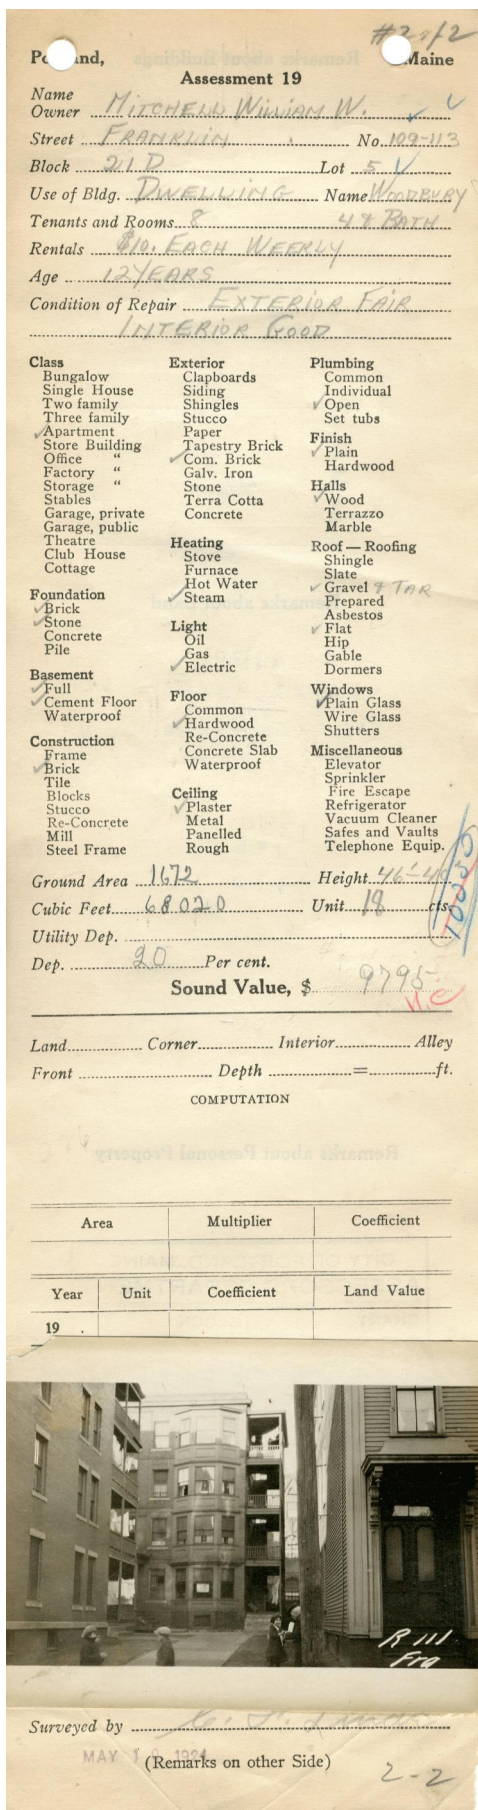 #2 of 2
Portland, Maine
Assessment 19
Name
Owner MITCHELL WILLIAM W.
Street FRANKLIN No. 109-113
Block 21 D Lot 5
Use of Bldg. DWELLING Name WOODBURY
Tenants and Rooms 8 4 & BATH
Rentals $10. EACH WEEKLY
Age 12 YEARS
Condition of Repair EXTERIOR FAIR
INTERIOR GOOD
Class
Bungalow
Single House
Two family
Three family
✓Apartment
Store Building
Office "
Factory "
Storage "
Stables
Garage, private
Garage, public
Theatre
Club House
Cottage
Foundation
✓Brick
✓Stone
Concrete
Pile
Basement
✓Full
✓Cement Floor
Waterproof
Construction
Frame
✓Brick
Tile
Blocks
Stucco
Re-Concrete
Mill
Steel Frame
Exterior
Clapboards
Siding
Shingles
Stucco
Paper
Tapestry Brick
✓Com. Brick
Galv. Iron
Stone
Terra Cotta
Concrete
Heating
Stove
Furnace
Hot Water
✓Steam
Light
Oil
Gas
✓Electric
Floor
Common
✓Hardwood
Re-Concrete
Concrete Slab
Waterproof
Ceiling
✓Plaster
Metal
Panelled
Rough
Plumbing
Common
Individual
✓Open
Set tubs
Finish
✓Plain
Hardwood
Halls
✓Wood
Terrazzo
Marble
Roof — Roofing
Shingle
Slate
✓Gravel & TAR
Prepared
Asbestos
✓Flat
Hip
Gable
Dormers
Windows
✓Plain Glass
Wire Glass
Shutters
Miscellaneous
Elevator
Sprinkler
Fire Escape
Refrigerator
Vacuum Cleaner
Safes and Vaults
Telephone Equip.
Ground Area 1672 Height 46'-40
Cubic Feet 68020 Unit 18 cts.
10250
Utility Dep.
Dep. 20 Per cent.
Sound Value, $ 9795
N.C
Land Corner Interior Alley
Front Depth = ft.
COMPUTATION
Area Multiplier Coefficient
Year Unit Coefficient Land Value
19
R 111
Fra
Surveyed by
MAY 1 1924
(Remarks on other Side)
2-2